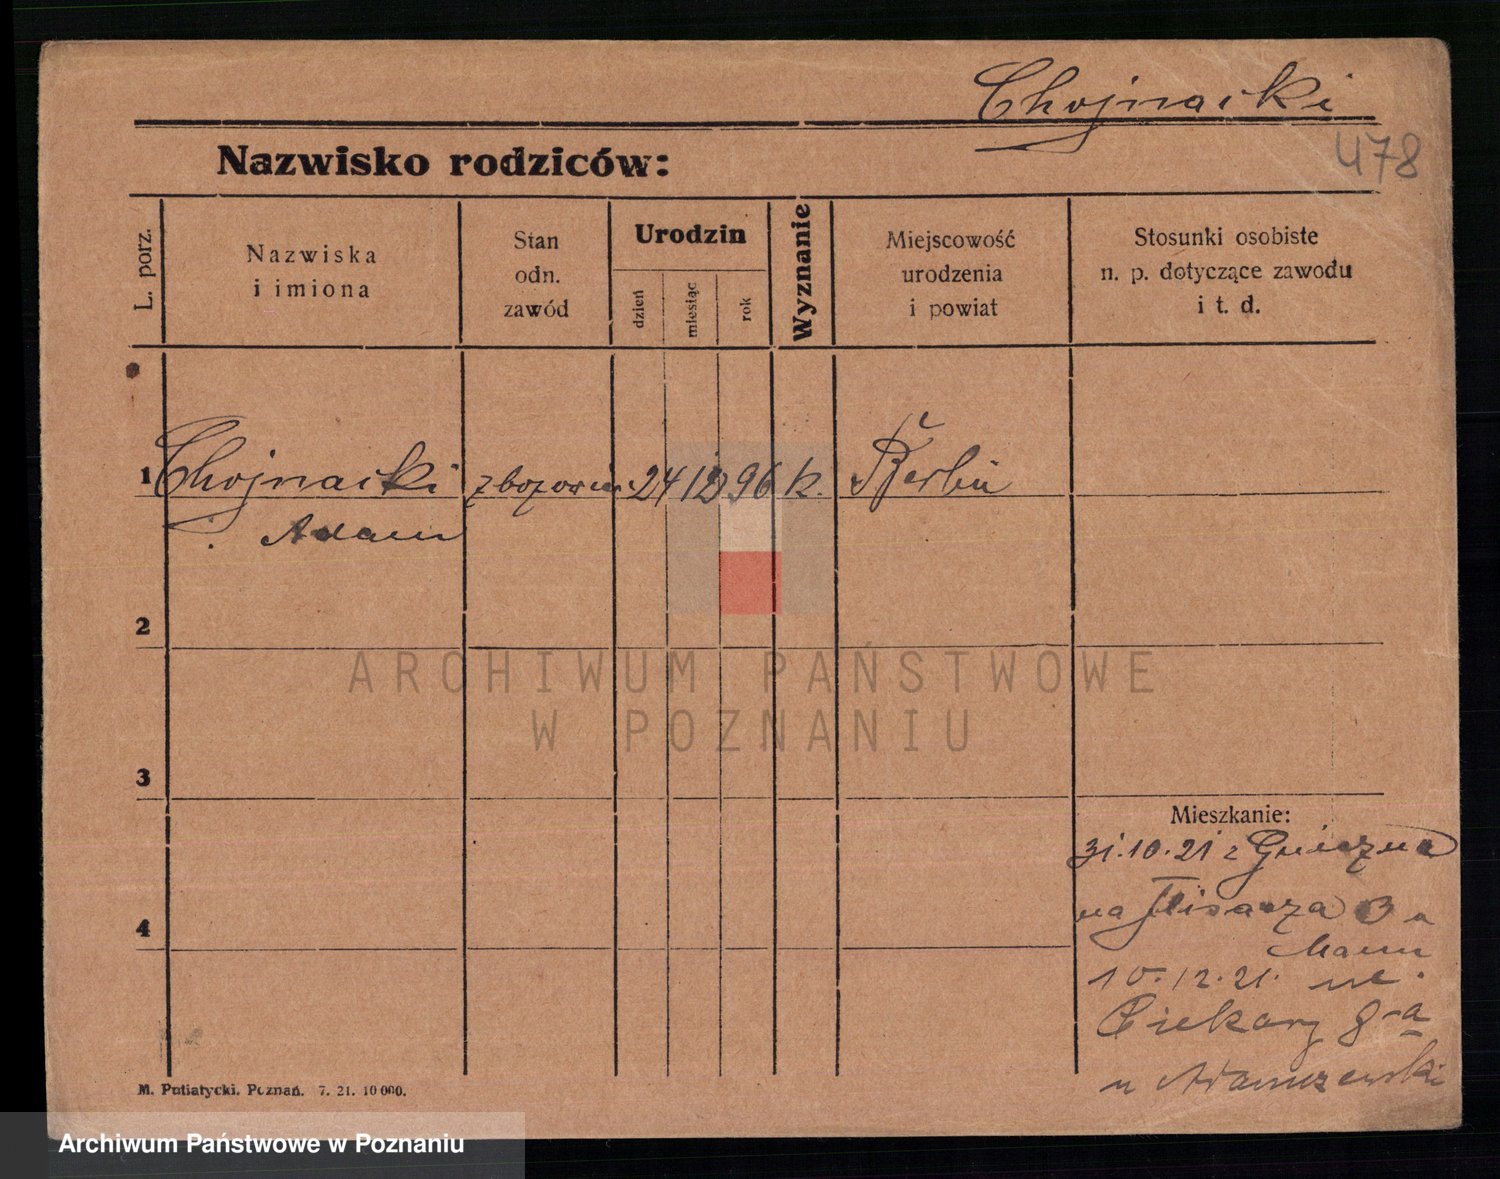 Chojnacki
478
Nazwisko rodziców:
L. porz.
Nazwiska
i imiona
Stan
odn.
zawód
Urodzin
dzień
miesiąc
rok
Wyznanie
Miejscowość
urodzenia
i powiat
Stosunki osobiste
n. p. dotyczące zawodu
i t. d.
1 Chojnacki 24 12 96 k. Berlin
Adam
2
3
4
Mieszkanie:
31.10.21 z Gniezna
na 3 u
10.12.21. ul.
Piekary 8-a
u Adamczewski
M. Putiatycki. Poznań. 7. 21. 10 000.
ARCHIWUM PAŃSTWOWE
W POZNANIU
Archiwum Państwowe w Poznaniu